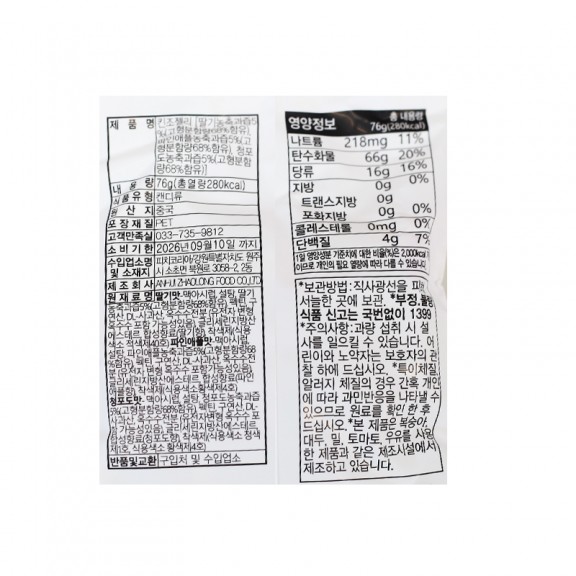 제 품 명 킨조젤리 [딸기농축과즙5%(고형분함량68%함유), 파인애플농축과즙5%(고형분함량68%함유), 청포도농축과즙5%(고형분함량68%함유)]
내 용 량 76g(총열량280kcal)
식품유형 캔디류
원 산 지 중국
포장재질 PET
고객만족실 033-735-9812
소비기한 2026년09월10일 까지
수입업소명 및 소재지 피치코리아/강원특별자치도 원주시 소초면 북원로 3058-2, 2동
제조회사 ANHUI ZHAOLONG FOOD CO.,LTD
원재료명 딸기맛-맥아시럽, 설탕, 딸기
농축과즙5%(고형분함량68%함유), 펙틴, 구
연산, DL-사과산, 옥수수전분(유전자 변형
옥수수 포함 가능성있음), 글리세린지방산
에스테르, 합성향료(딸기향), 착색제(식용
색소 적색제40호) 파인애플맛-맥아시럽,
설탕, 파인애플농축과즙5%(고형분함량68
%함유), 펙틴, 구연산, DL-사과산, 옥수수전
분(유전자 변형 옥수수 포함가능성있음),
글리세린지방산에스테르, 합성향료(파인
애플향), 착색제(식용색소황색제4호)
청포도맛-맥아시럽, 설탕, 청포도농축과즙
5%(고형분함량68%함유), 펙틴, 구연산, DL-
사과산, 옥수수전분(유전자변형 옥수수 포
함 가능성있음), 글리세린지방산에스테르,
합성향료(청포도향), 착색제(식용색소 청색
제1호, 식용색소 황색제4호)
반품및교환 구입처 및 수입업소
영양정보 총 내용량 76g(280kcal)
나트륨 218mg 11%
탄수화물 66g 20%
당류 16g 16%
지방 0g 0%
트랜스지방 0g
포화지방 0g 0%
콜레스테롤 0mg 0%
단백질 4g 7%
1일 영양성분 기준치에 대한 비율(%)은 2,000kcal
이므로 개인의 필요 열량에 따라 다를 수 있습니다.
*보관방법: 직사광선을 피해
서늘한 곳에 보관. *부정,불량
식품 신고는 국번없이 1399
*주의사항: 과량 섭취 시 설
사를 일으킬 수 있습니다. 어
린이와 노약자는 보호자의 관
찰 하에 드십시오. *특이체질,
알러지 체질의 경우 간혹 개인
에 따라 과민반응을 나타낼 수
있으므로 원료를 확인 한 후
드십시오.*본 제품은 복숭아,
대두, 밀, 토마토, 우유를 사용
한 제품과 같은 제조시설에서
제조하고 있습니다.